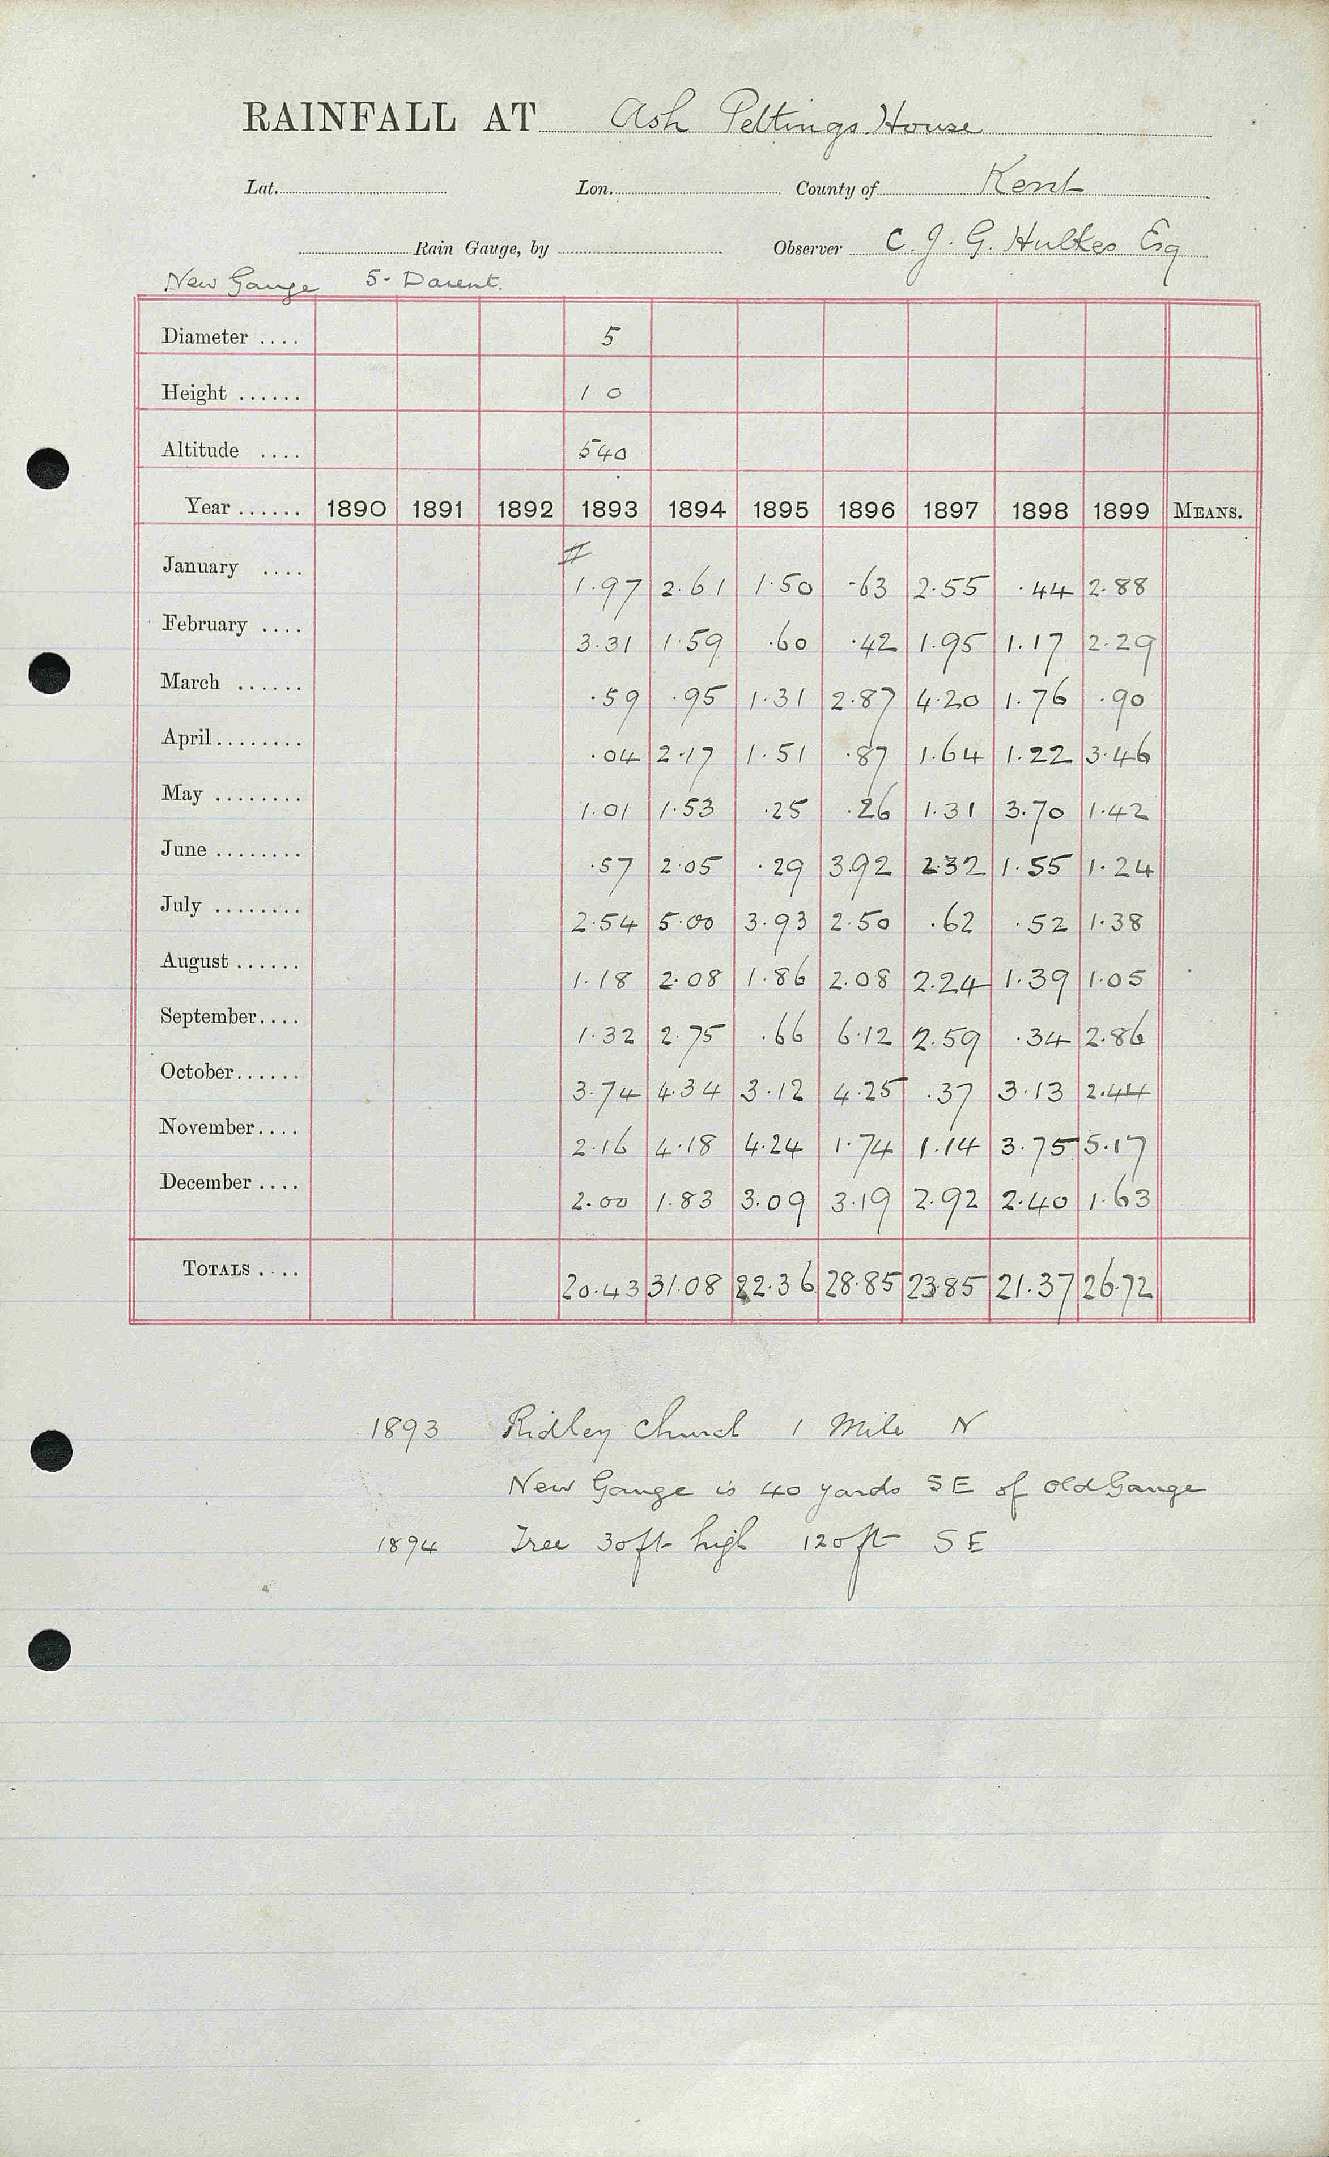 RAINFALL AT Ash Peltings House
Lat. Lon. County of Kent
Rain Gauge, by Observer C. J. G. Hulkes Esq
New Gauge 5 - Darent.
Diameter .... 5
Height ...... 1 0
Altitude .... 540
Year ...... 1890 1891 1892 1893 1894 1895 1896 1897 1898 1899 MEANS.
January .... 1.97 2.61 1.50 .63 2.55 .44 2.88
February .... 3.31 1.59 .60 .42 1.95 1.17 2.29
March ...... .59 .95 1.31 2.87 4.20 1.76 .90
April ........ .04 2.17 1.51 .87 1.64 1.22 3.46
May ........ 1.01 1.53 .25 .26 1.31 3.70 1.42
June ........ .57 2.05 .29 3.92 2.32 1.55 1.24
July ........ 2.54 5.00 3.93 2.50 .62 .52 1.38
August ...... 1.18 2.08 1.86 2.08 2.24 1.39 1.05
September .... 1.32 2.75 .66 6.12 2.59 .34 2.86
October ...... 3.74 4.34 3.12 4.25 .37 3.13 2.44
November .... 2.16 4.18 4.24 1.74 1.14 3.75 5.17
December .... 2.00 1.83 3.09 3.19 2.92 2.40 1.63
TOTALS .... 20.43 31.08 22.36 28.85 23.85 21.37 26.72
1893 Ridley Church 1 Mile N
New Gauge is 40 yards SE of Old Gauge
1894 Tree 30ft high 120ft SE